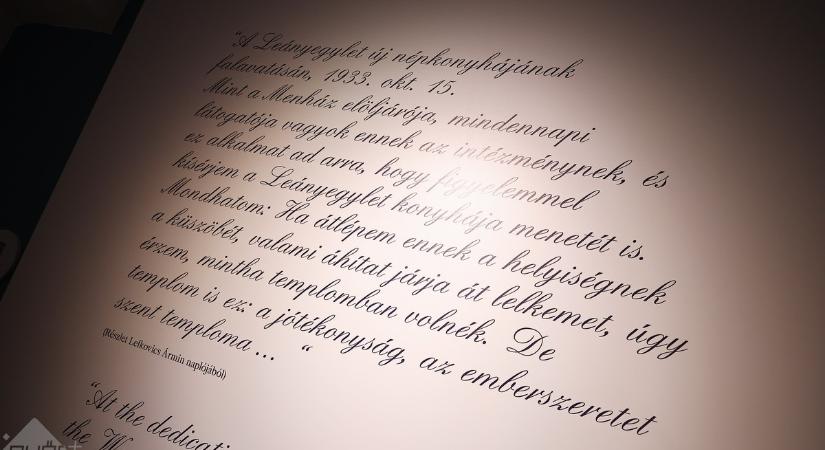 "A Leányegylet új népkonyhájának
falavatásán, 1933. okt. 15.
Mint a Menház elöljárója, mindennapi
látogatója vagyok ennek az intézménynek, és
ez alkalmat ad arra, hogy figyelemmel
kísérjem a Leányegylet konyhája menetét is.
Mondhatom: Ha átlépem ennek a helyiségnek
a küszöbét, valami áhítat járja át lelkemet, úgy
érzem, mintha templomban volnék. De
templom is ez: a jótékonyság, az emberszeretet
szent temploma ... "
(Részlet Lefkovics Ármin naplójából)
"At the dedicati
the W